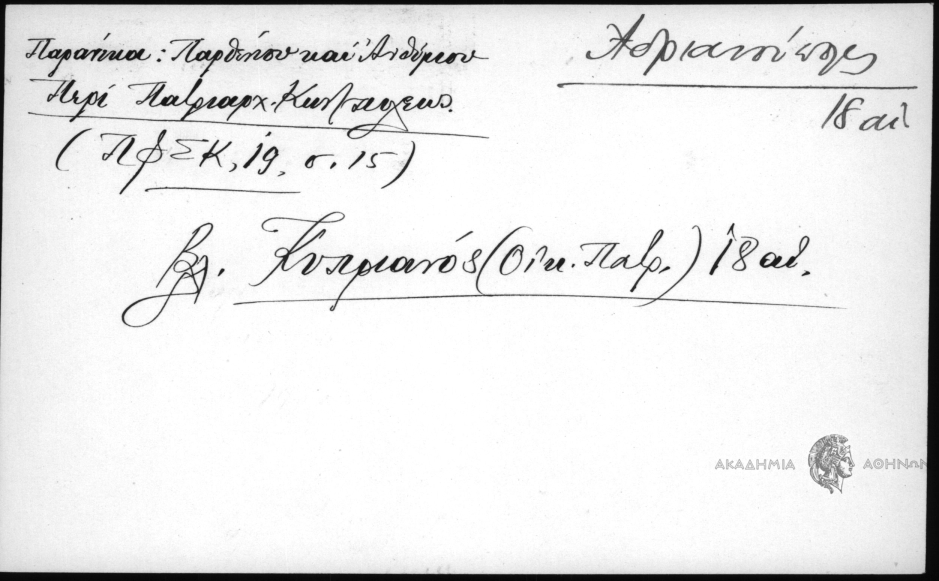 Παρανίκα: Παρθενίου καὶ Ἀνθίμιου
Περὶ Πατριαρχ. Κων/πόλεως.
(ΠΦΣΚ, 19, σ. 15)
Ἀδριανούπολις
18 αἰ
Βλ. Κυπριανός (Οἰκ. Πατρ.) 18 αἰ.
ΑΚΑΔΗΜΙΑ ΑΘΗΝΩΝ